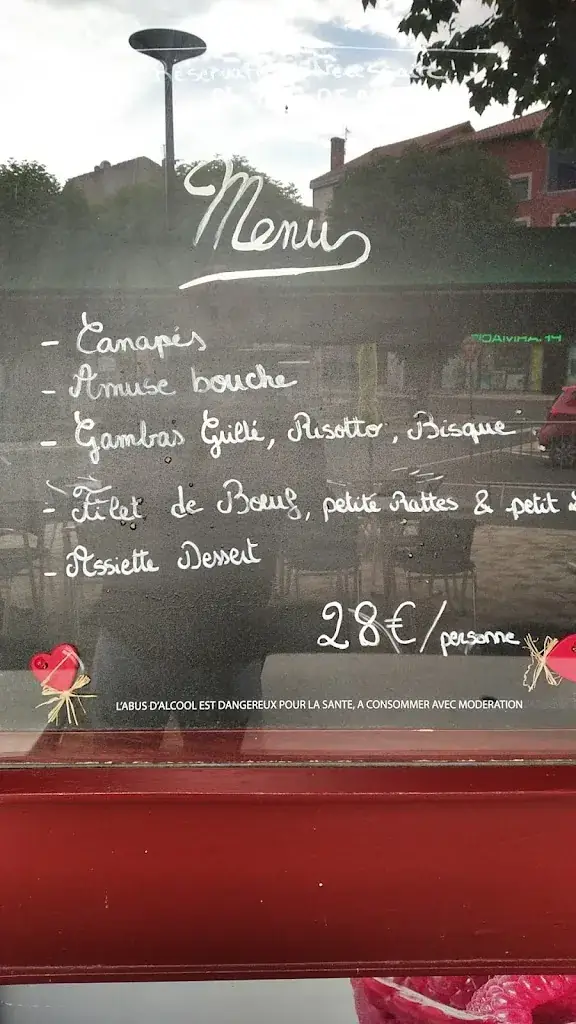 Réservation nécessaire
Menu
- Canapés
- Amuse bouche
- Gambas Grillé, Risotto, Bisque
- Filet de Bœuf, petite Rattes & petit
- Assiette Dessert
28€/personne
L'ABUS D'ALCOOL EST DANGEREUX POUR LA SANTE, A CONSOMMER AVEC MODERATION